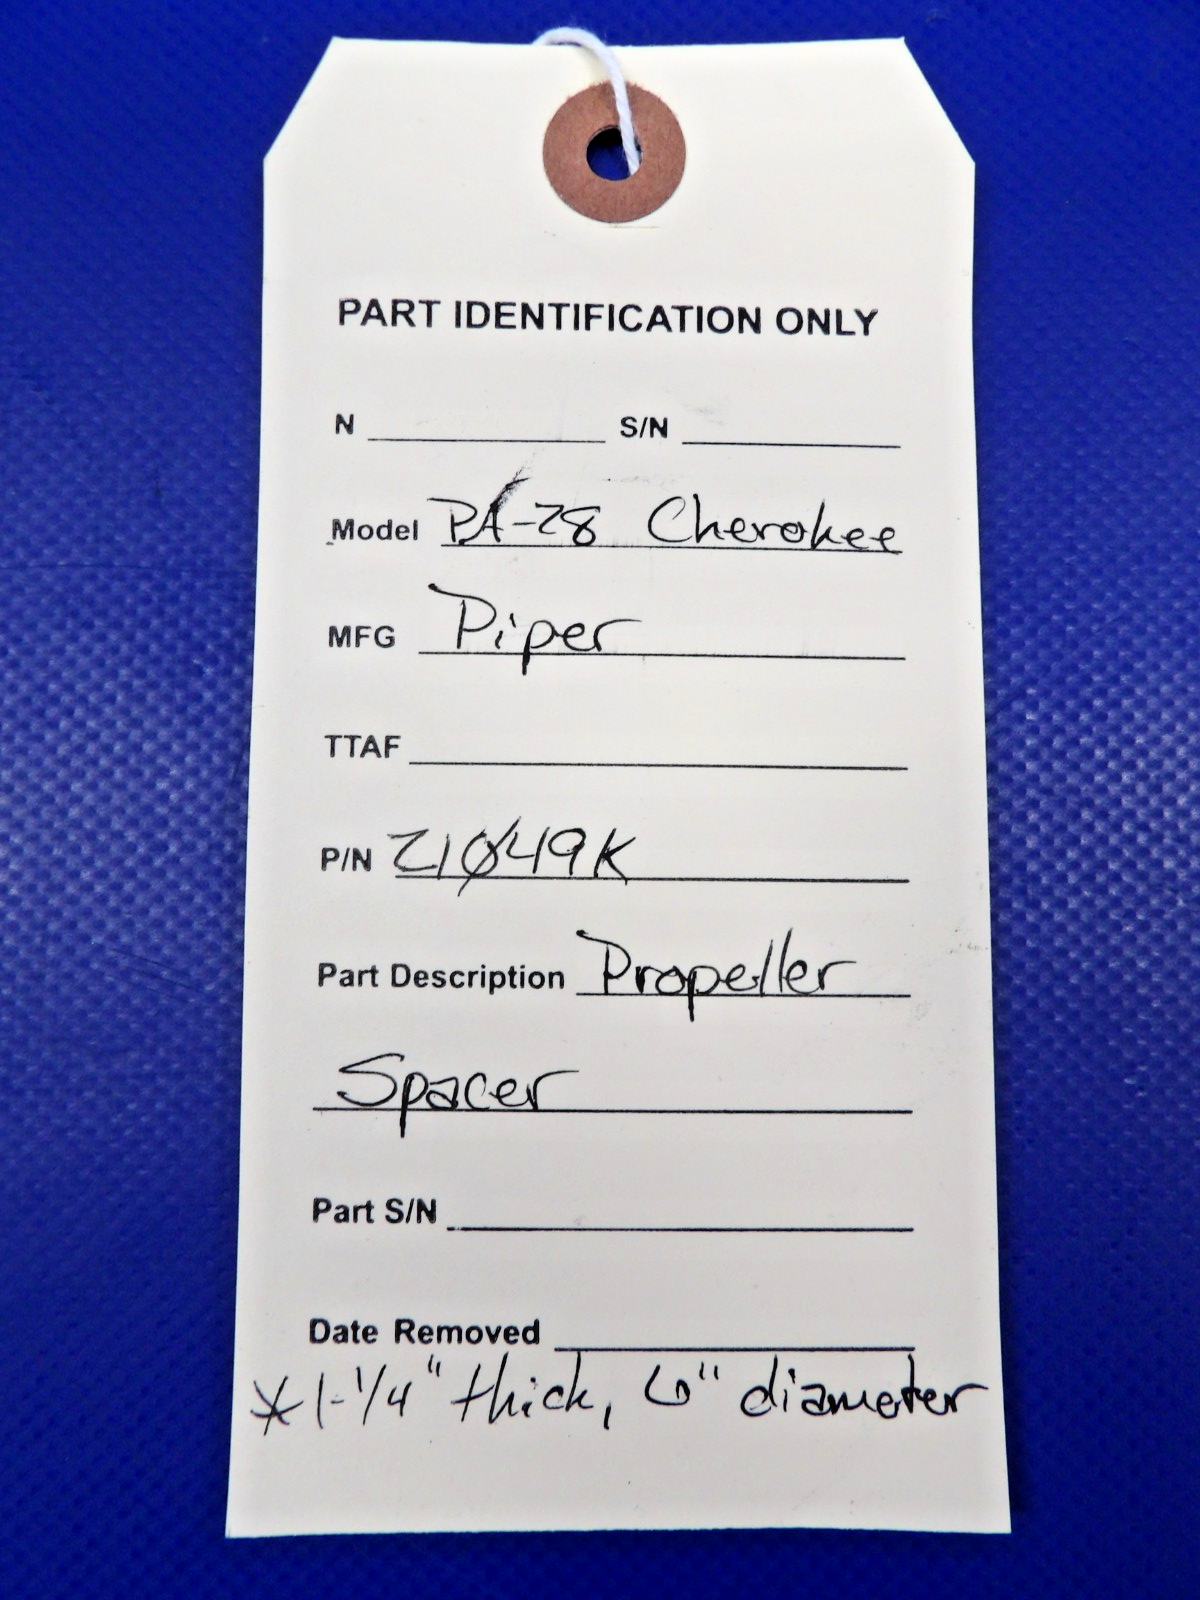 PART IDENTIFICATION ONLY
N S/N
Model PA-28 Cherokee
MFG Piper
TTAF
P/N 21049K
Part Description Propeller
Spacer
Part S/N
Date Removed
*1-1/4" thick, 6" diameter